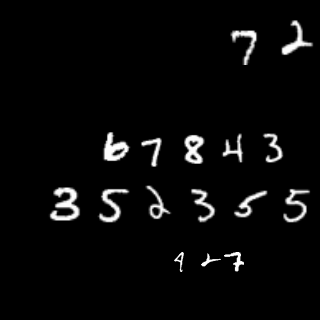 72
67843
352355
427